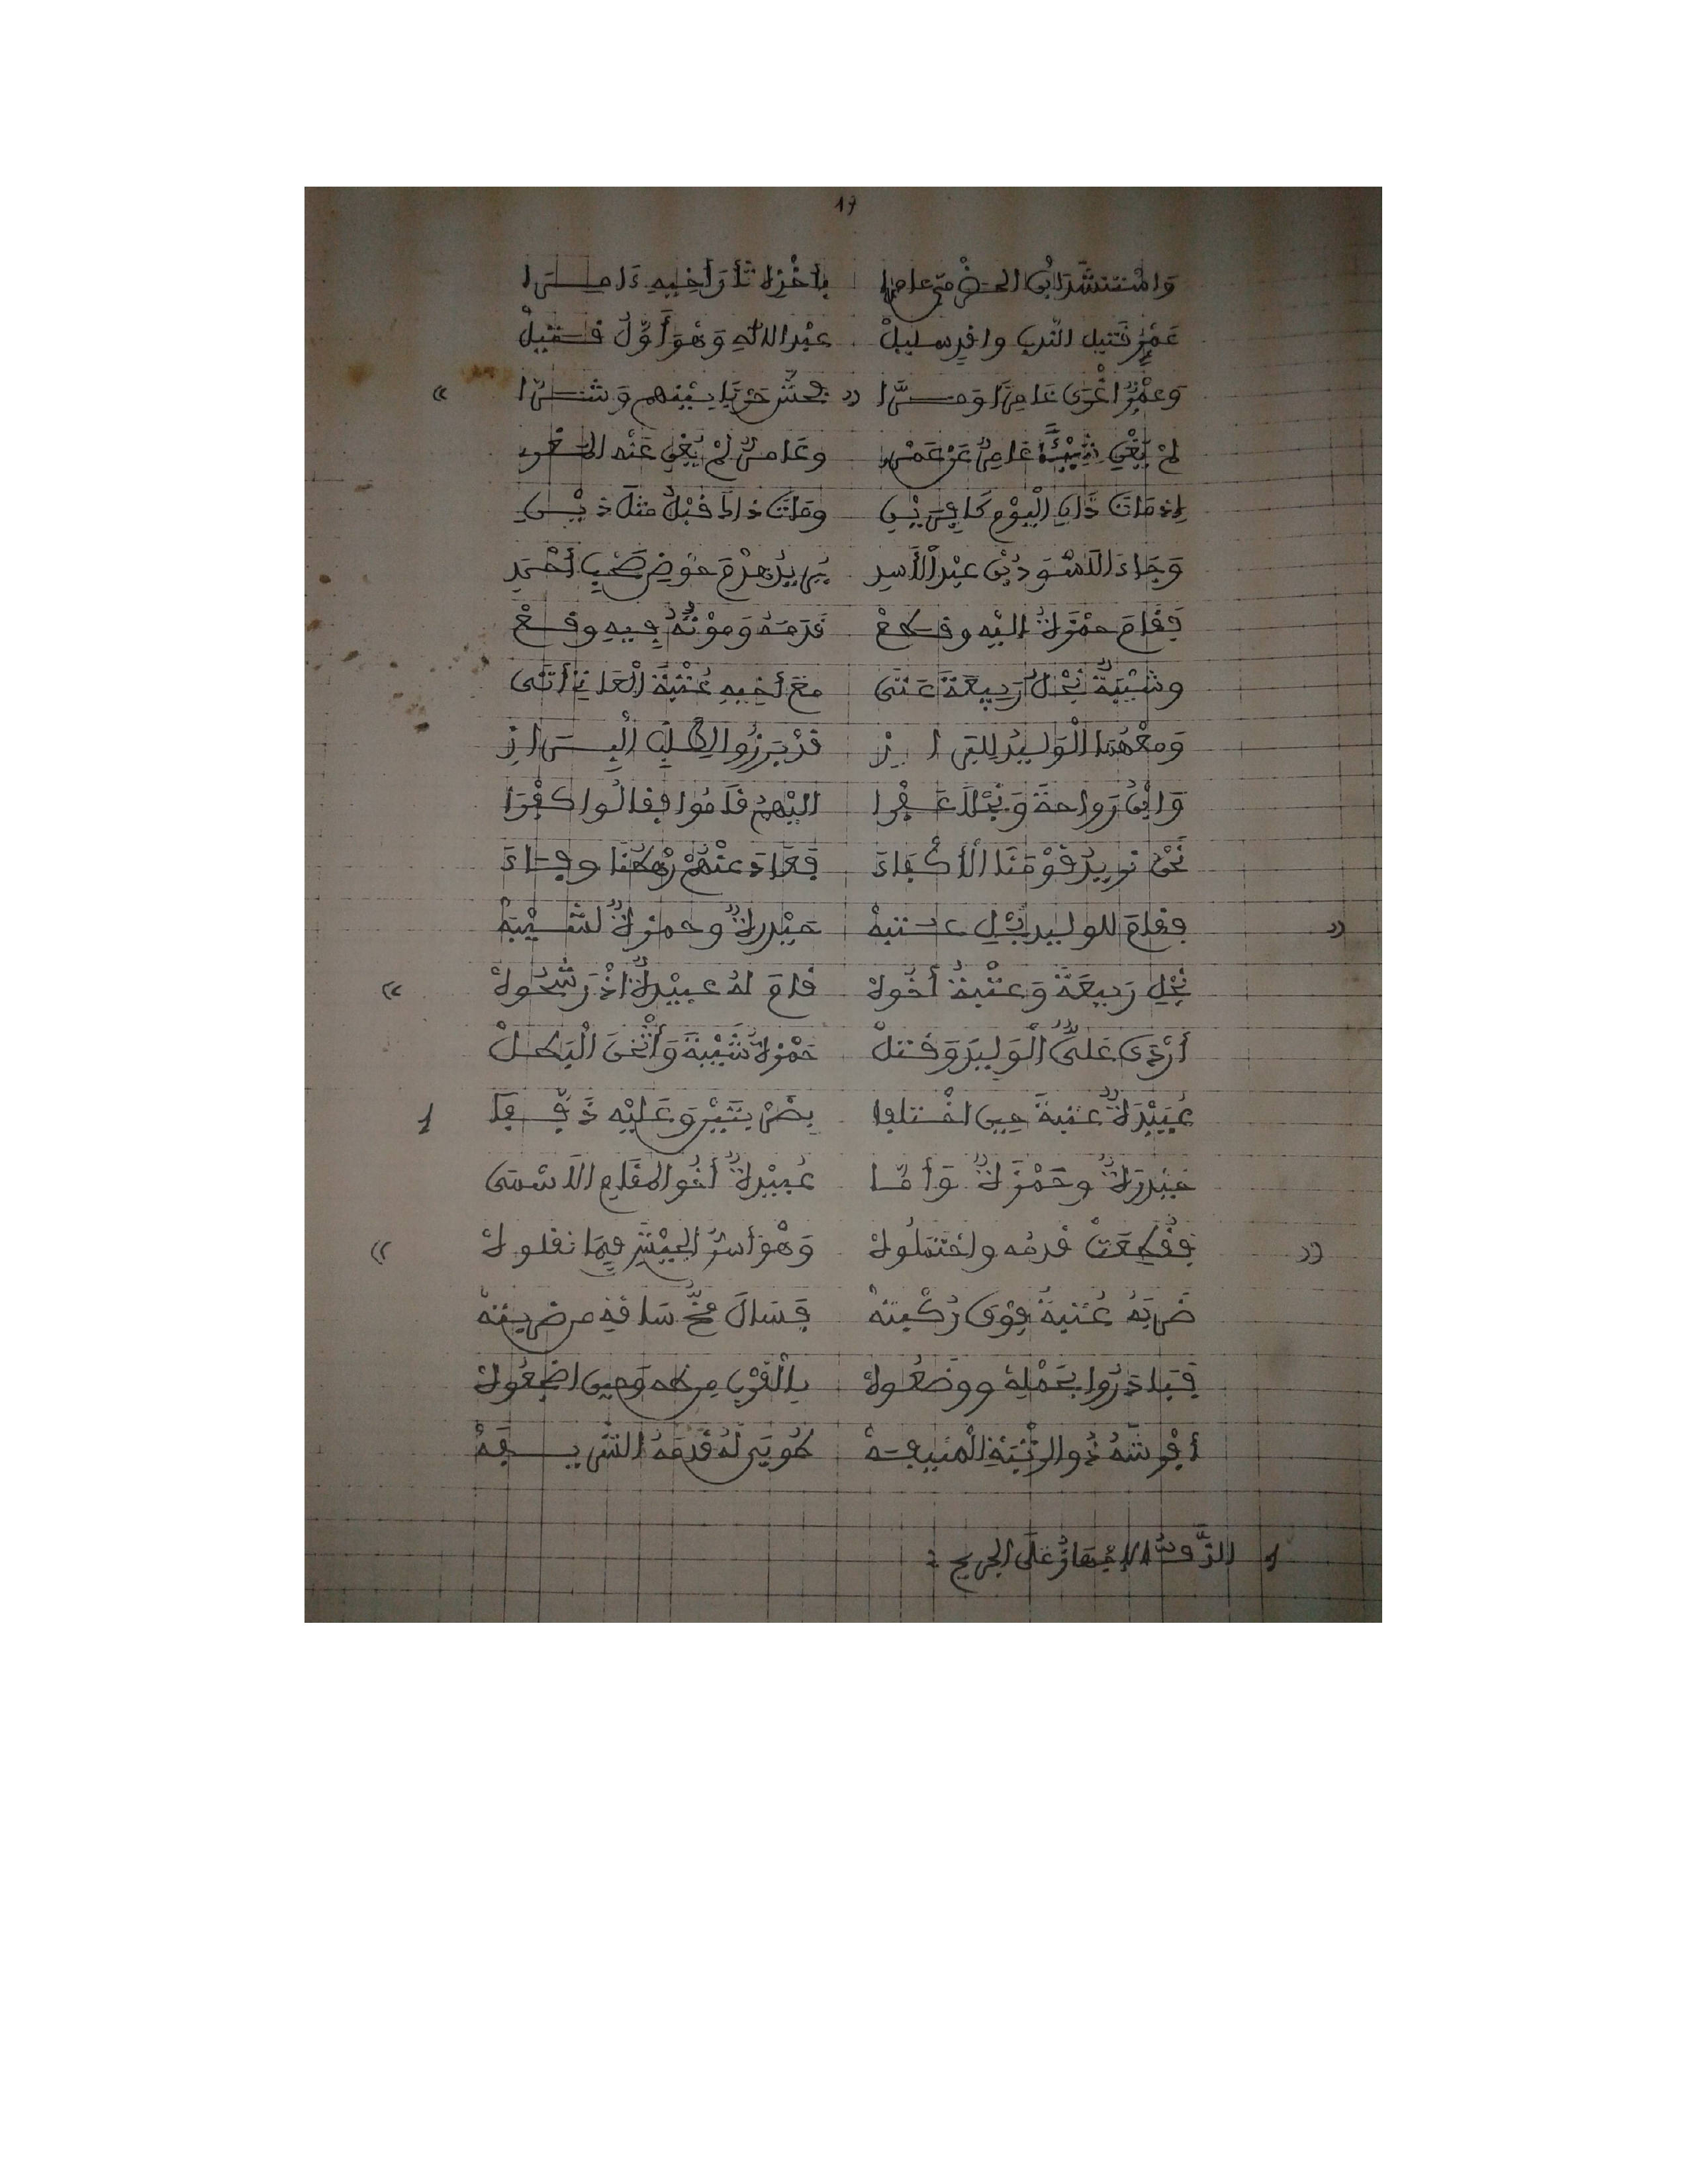 17
وَاسْتَنْشَدَ ابْنُ الحضْرمي عامرا بأخْذِهِ ثَأْرَ أَخِيهِ ءَامِرَا
عَمْرٍو قَتِيلِ النَّدبِ وافدٍ سليلْ عبْدِ اللهِ وَهْوَ أَوَّلُ قَتِيلْ
وَعمْرٌو اغْرَى عَامِرًا وَمرَّا « بحشِّ حَرْبًا بيْنهم وَشرَّا »
لمْ يُغْنِ شَيْئًا عَامِرٌ عَنْ عَمْرِو وعَامرٌ لمْ يُغْنِ عَنْه
إذ مَاتَ ذَا فِي الْيَوْمِ كَافِرَيْنِ ومَاتَ ذاكَ قبْلُ مثلَ ذَيْنِ
وَجَاءَ الَاسْوَدُ بْنُ عبْدِ الْأَسدِ يُرِيدُ هدْمَ حَوْضِ صَحْبِ أَحْمَدِ
فَقَامَ حمْزَةٌ اليْهِ وقطعْ قَدَمَهُ وَمَوْتُهُ فِيهِ وقعْ
وشَيْبَةٌ نَجْلُ رَبِيعَةَ عَتَى معَ أَخِيهِ عُتْبَةَ الْعَاتِ أَتَى
وَمعْهُمَا الْوَلِيدُ لِلبرازِ قدْ بَرَزُوا لِطَلَبِ الْبِرَازِ
وَابْنُ رَوَاحةَ وَنَجْلَا عَفْرا اليْهمُ قَامُوا فقالُوا كفْرَا
نَحْنُ نريدُ قَوْمَنَا الْأَكْفَاءَ فَعَادَ عنْهُمْ رَهْطُنَا وفاءَ
فقامَ للوليدِ نجْلِ عتبهْ حَيْدرةٌ وحمزةٌ لشَيْبَهْ
نَجْلِ رَبيعَةَ وَعتْبةُ أَخُوهْ قامَ لهُ عبيْدةٌ اذْ رَشَّحُوهْ
أَرْدَى عَلِيٌّ الْوَلِيدَ وَقتلْ حَمْزةُ شَيْبَةَ وَأَثْخنَ الْبَطلْ
عُبَيْدَةٌ عتبةَ حِينَ اخْتلفا بضَرْبَتَيْنِ وَعَلَيْه ذَفَّفَا 1
حَيْدرَةٌ وحَمْزَةٌ وَأَمَّا عُبيْدةٌ أخُو المقَامِ الَاسْمَى
فقُطِعَتْ قدمُه واحْتَمَلُوهْ وَهْوَ أسنُّ الجيْشِ فِيمَا نقلوهْ »
ضَرَبَهُ عُتبةُ فوْقَ رُكْبتهْ فَسَالَ مُخُّ سَاقِهِ من ضربتهْ
فَتَبَادَرُوا بحَمْلِهِ ووضَعُوهْ بالْقُرْبِ مِن طه وَحِينَ اضْجَعُوهْ
أفْرشَهُ ذُو الرُّتْبَةِ الْمُنِيفهْ طُوبَى لهُ قَدَمَهُ الشَّريفَهْ
1 الذَّفُّ الإجْهَازُ عَلَى الجريح :